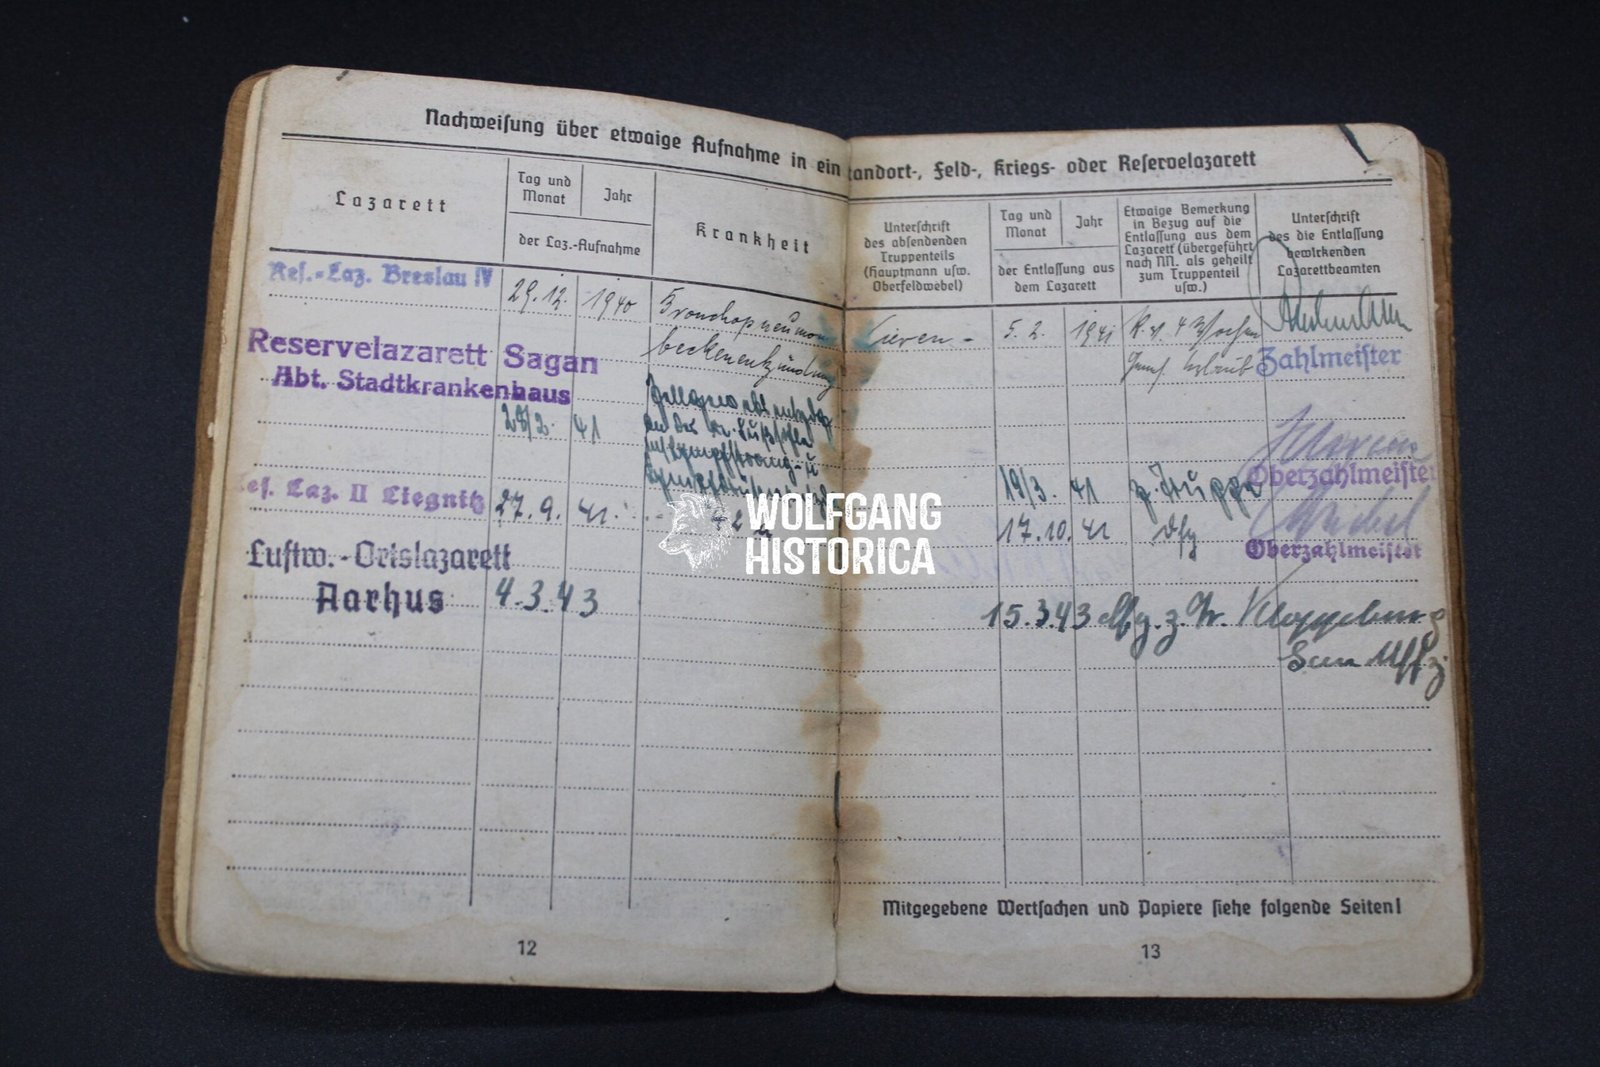 Nachweisung über etwaige Aufnahme in ein
Lazarett
Tag und Monat
Jahr
der Laz.-Aufnahme
Krankheit
Res.-Laz. Breslau IV
29.12. 1940 Bronchopneumon
beckenentzündung
Reservelazarett Sagan
Abt. Stadtkrankenhaus
41
es. Laz. II Liegnitz
27.9. 41.
Luftw.-Ortslazarett
Aarhus
4.3.43
12
tandort-, Feld-, Kriegs- oder Reservelazarett
Unterschrift
des absendenden
Truppenteils
(Hauptmann usw.
Oberfeldwebel)
Tag und Monat
Jahr
der Entlassung aus
dem Lazarett
Etwaige Bemerkung
in Bezug auf die
Entlassung aus dem
Lazarett (übergeführt
nach NN. als geheilt
zum Truppenteil
usw.)
Unterschrift
des die Entlassung
bewirkenden
Lazarettbeamten
nieren - 5. 2. 1941 K.v. 4 Wochen
Urlaub
Zahlmeister
19/3. 41 z. Truppe
Oberzahlmeister
17.10.41 dfg
Oberzahlmeister
15.3.43 dfg. z. Tr.
San Uffz
Mitgegebene Wertsachen und Papiere siehe folgende Seiten!
13
WOLFGANG
HISTORICA